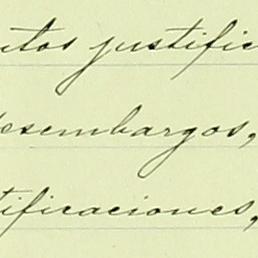 utos justific
desembargos,
tificaciones,